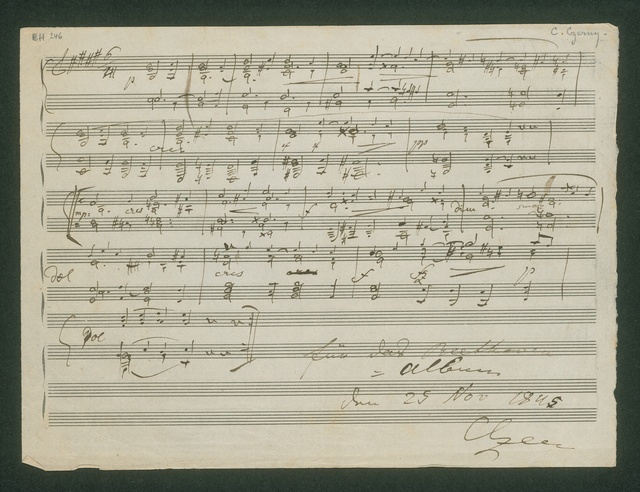 BH 246
C. Czerny.
6
p
cres
p
mp
cres
f
dim
dol
cres
f
p
dol
für das Beethoven
= album
den 25 Nov 1845